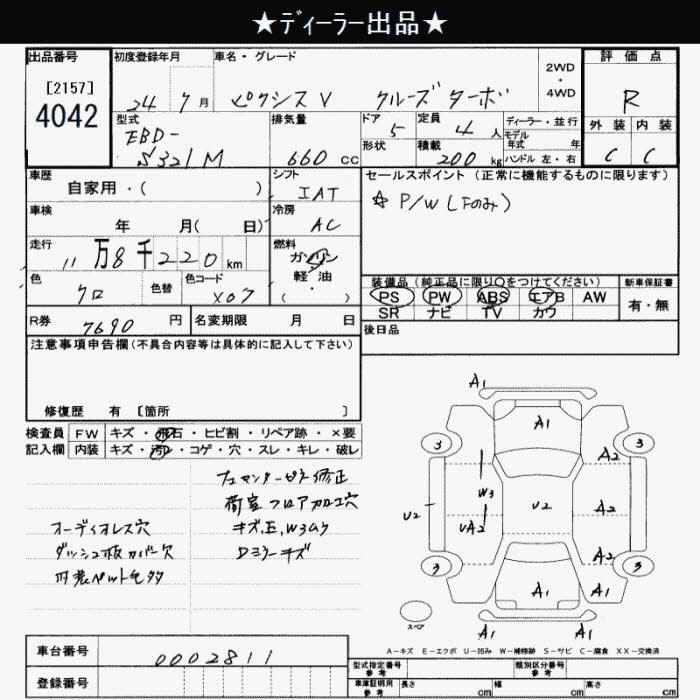 ★ディーラー出品★
出品番号
[2157]
4042
初度登録年月
24 7月
車名・グレード
ピクシスV クルーズターボ
2WD
・
4WD
評価点
R
型式
EBD-
S321M
排気量
660 cc
ドア
5
定員
4 人
形状
積載
200 kg
ディーラー・並行
モデル
年式 年
ハンドル 左・右
外装 内装
C C
車歴
自家用・( )
シフト
IAT
セールスポイント (正常に機能するものに限ります)
☆ P/W (Fのみ)
車検
年 月( 日)
冷房
AC
走行
11万8千220km
燃料
ガソリン
軽・油
( )
色
クロ
色替
色コード
X07
装備品 (純正品に限り○をつけてください)
PS PW ABS エアB AW
SR ナビ TV カワ
新車保証書
有・無
R券
7690 円
名変期限 月 日
後日品
注意事項申告欄 (不具合内容等は具体的に記入して下さい)
修復歴 有 [箇所 ]
検査員 FW キズ・飛石・ヒビ割・リペア跡・×要
記入欄 内装 キズ・汚レ・コゲ・穴・スレ・キレ・破レ
フロアカロエ穴
オーディオレス穴
キズ、E、W3ムラ
ダッシュ板カバー欠
Dミラーキズ
A1
A1
3 3
A2
W3
U2 UA2 U2 A2
A2
3 3
A1 A1
スペア
A1 A1
A-キズ E-エクボ U-凹み W-補修跡 S-サビ C-腐食 XX-交換済
車台番号
0002811
登録番号
型式指定番号
参考
類別区分番号
参考
車庫証明用
参考
長さ cm 幅 cm 高さ cm